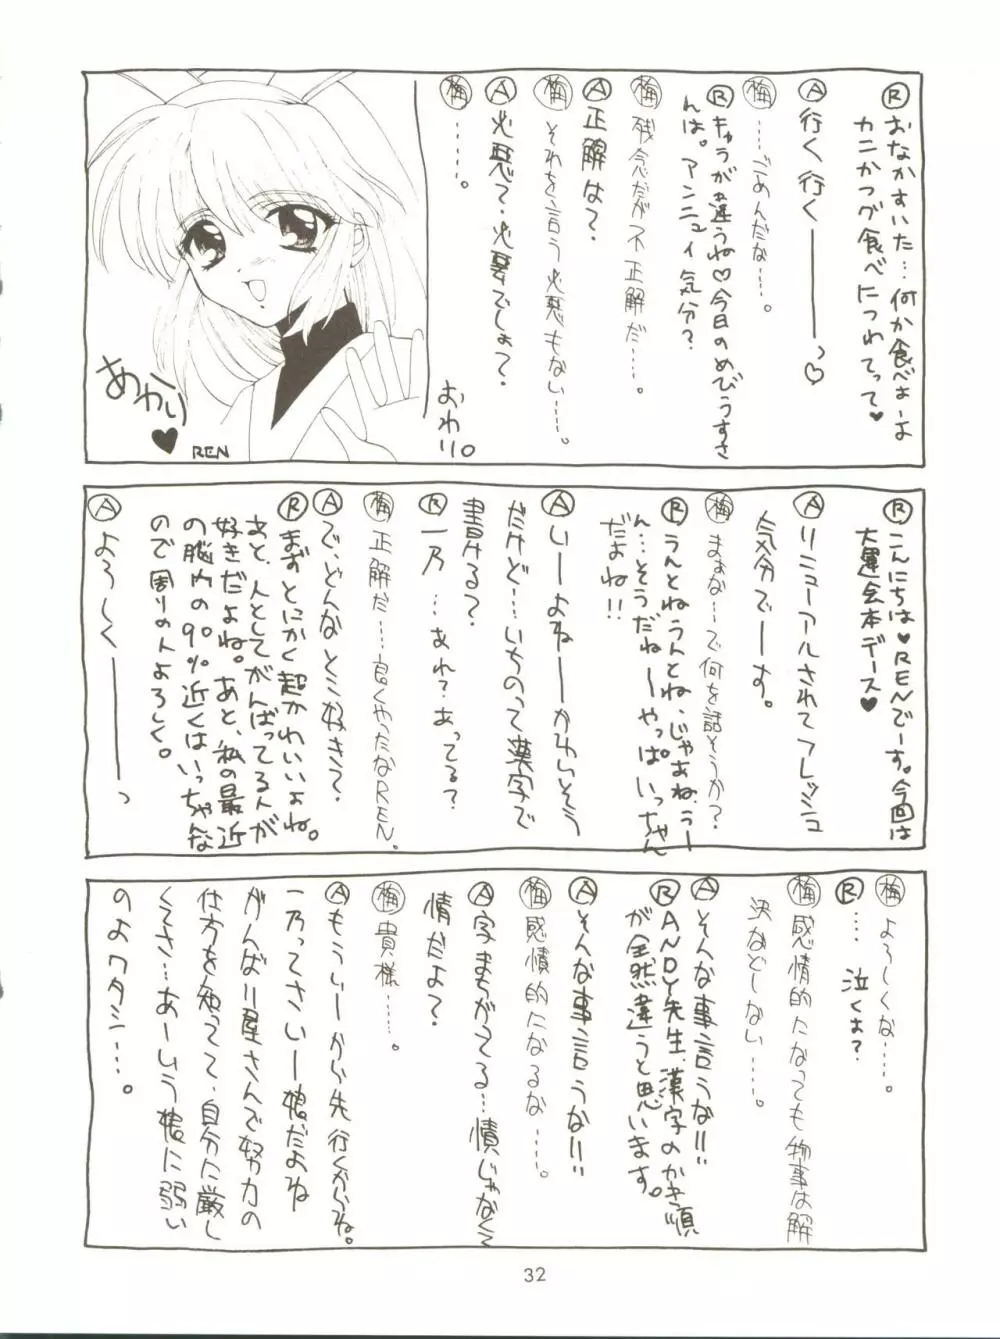 Ⓡおなかすいた…何か食べよーよ
カニかつグ食べにつれてって♥
Ⓐ行く行く――――っ♡
梅……ごめんだな…。
Ⓡキャラが違うね♡今日のめびうすさ
んは。アンニュイ気分？
梅残念だが不正解だ…。
Ⓐ正解は？
梅それを言う必悪もない…。
Ⓐ必悪？・必要でしょ？
梅……。
おわり。
あかり♥
REN
Ⓡこんにちは♥RENでーす。今回は
大運会本デース♥
Ⓐリニューアルされてフレッシュ
気分でーーす。
梅まぁな…で何を話そうか？
Ⓡうんとねうんとね、じゃあね、うー
ん…そうだねーやっぱいっちゃん
だよね!!
Ⓐいーよねーーかわいそう
だけど…いちのって漢字で
書ける？
Ⓡ一乃…あれ？あってる？
梅正解だ…良くやったなREN。
Ⓐで、どんなとこ好き？
Ⓡまずとにかく超かわいいよね。
あと、人としてがんばってる人が
好きだよね。あと、私の最近
の脳内の90%近くはいっちゃんな
ので周りの人よろしく。
Ⓐよろしく――――っ
梅よろしくな…。
Ⓡ…泣くよ？
梅感情的になっても物事は解
決などしない…。
Ⓐそんな事言うな!!
ⓇANDY先生、漢字のかき順
が全然違うと思います。
Ⓐそんな事言うな!!
梅感憤的になるな…。
Ⓐ字まちがってる…憤じゃなくて
情だよ？
梅貴様…。
Ⓐもういーから先行くからね。
一乃ってさいー娘だよね
がんばり屋さんで努力の
仕方を知ってて、自分に厳し
くてさ…あーいう娘に弱い
のよワタシ…。
32